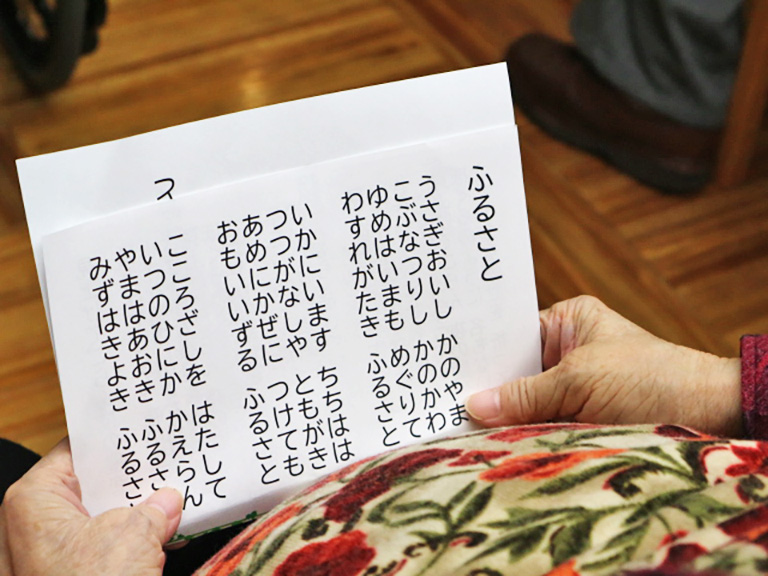 ふるさと
うさぎおいし かのやま
こぶなつりし かのかわ
ゆめはいまも めぐりて
わすれがたき ふるさと
いかにいます ちちはは
つつがなしや ともがき
あめにかぜに つけても
おもいいずる ふるさと
こころざしを はたして
いつのひにか かえらん
やまはあおき ふるさ
みずはきよき ふるさと